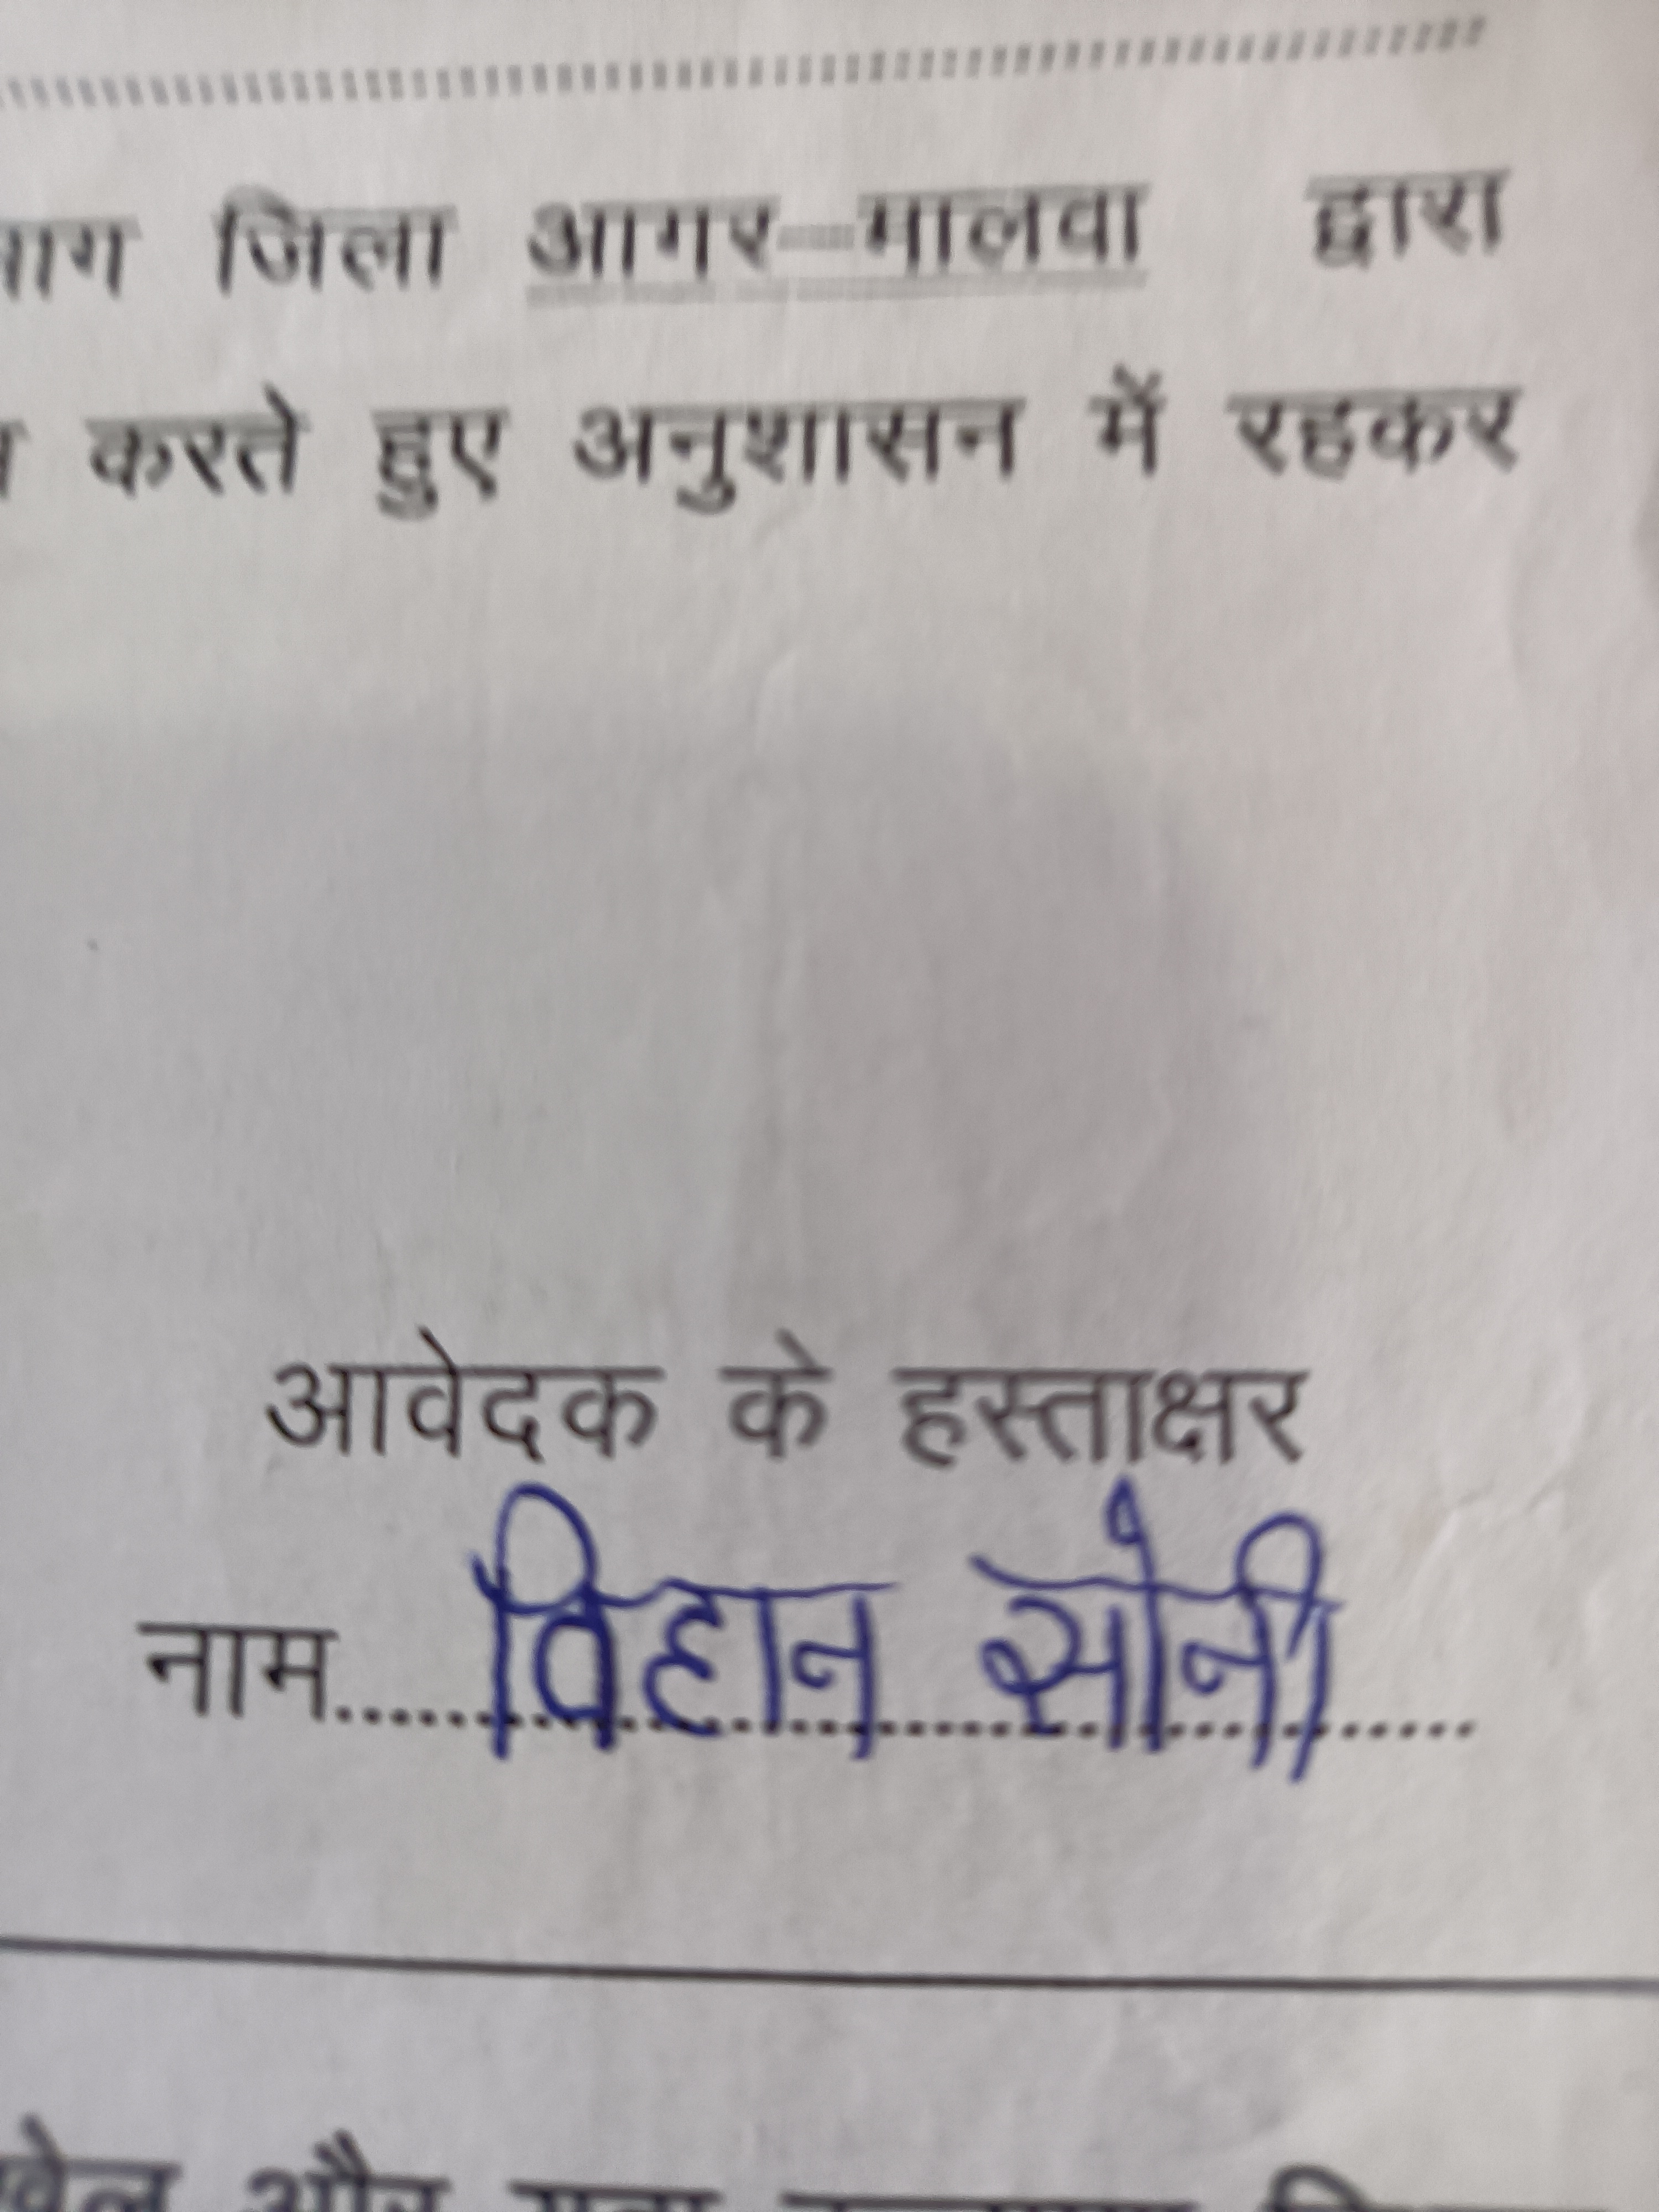 जिला आगर–मालवा द्वारा
करते हुए अनुशासन में रहकर
आवेदक के हस्ताक्षर
नाम..... विहान सोनी .....
और